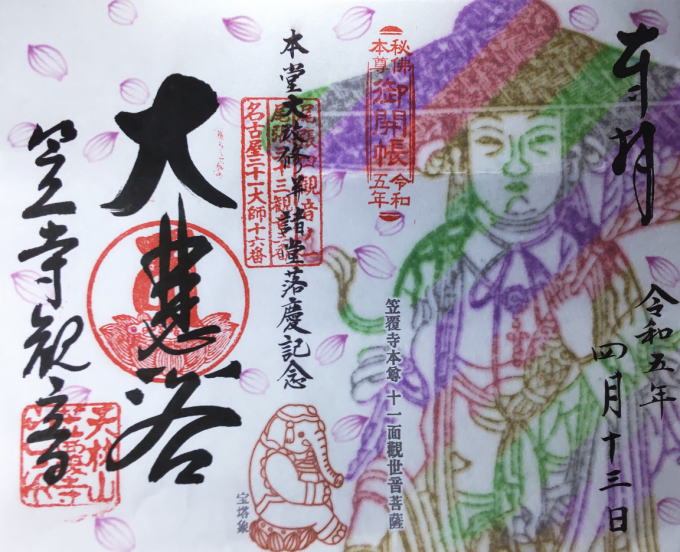 奉拝
令和五年
四月十三日
秘佛
本尊
御開帳
令和
五年
笠覆寺本尊 十一面観世音菩薩
本堂大改修並諸堂落慶記念
名古屋二十一大師十六番
宝塔象
大悲
笠寺観音
天林山
笠覆寺